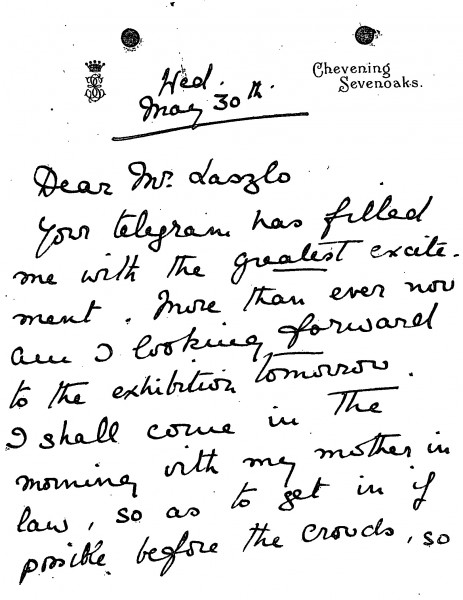 Chevening
Sevenoaks.
Wed.
May 30th.
Dear Mr. Laszlo
Your telegram has filled
me with the greatest excite-
ment. More than ever now
am I looking forward
to the exhibition tomorrow.
I shall come in the
morning with my mother in
law, so as to get in if
possible before the crowds, so